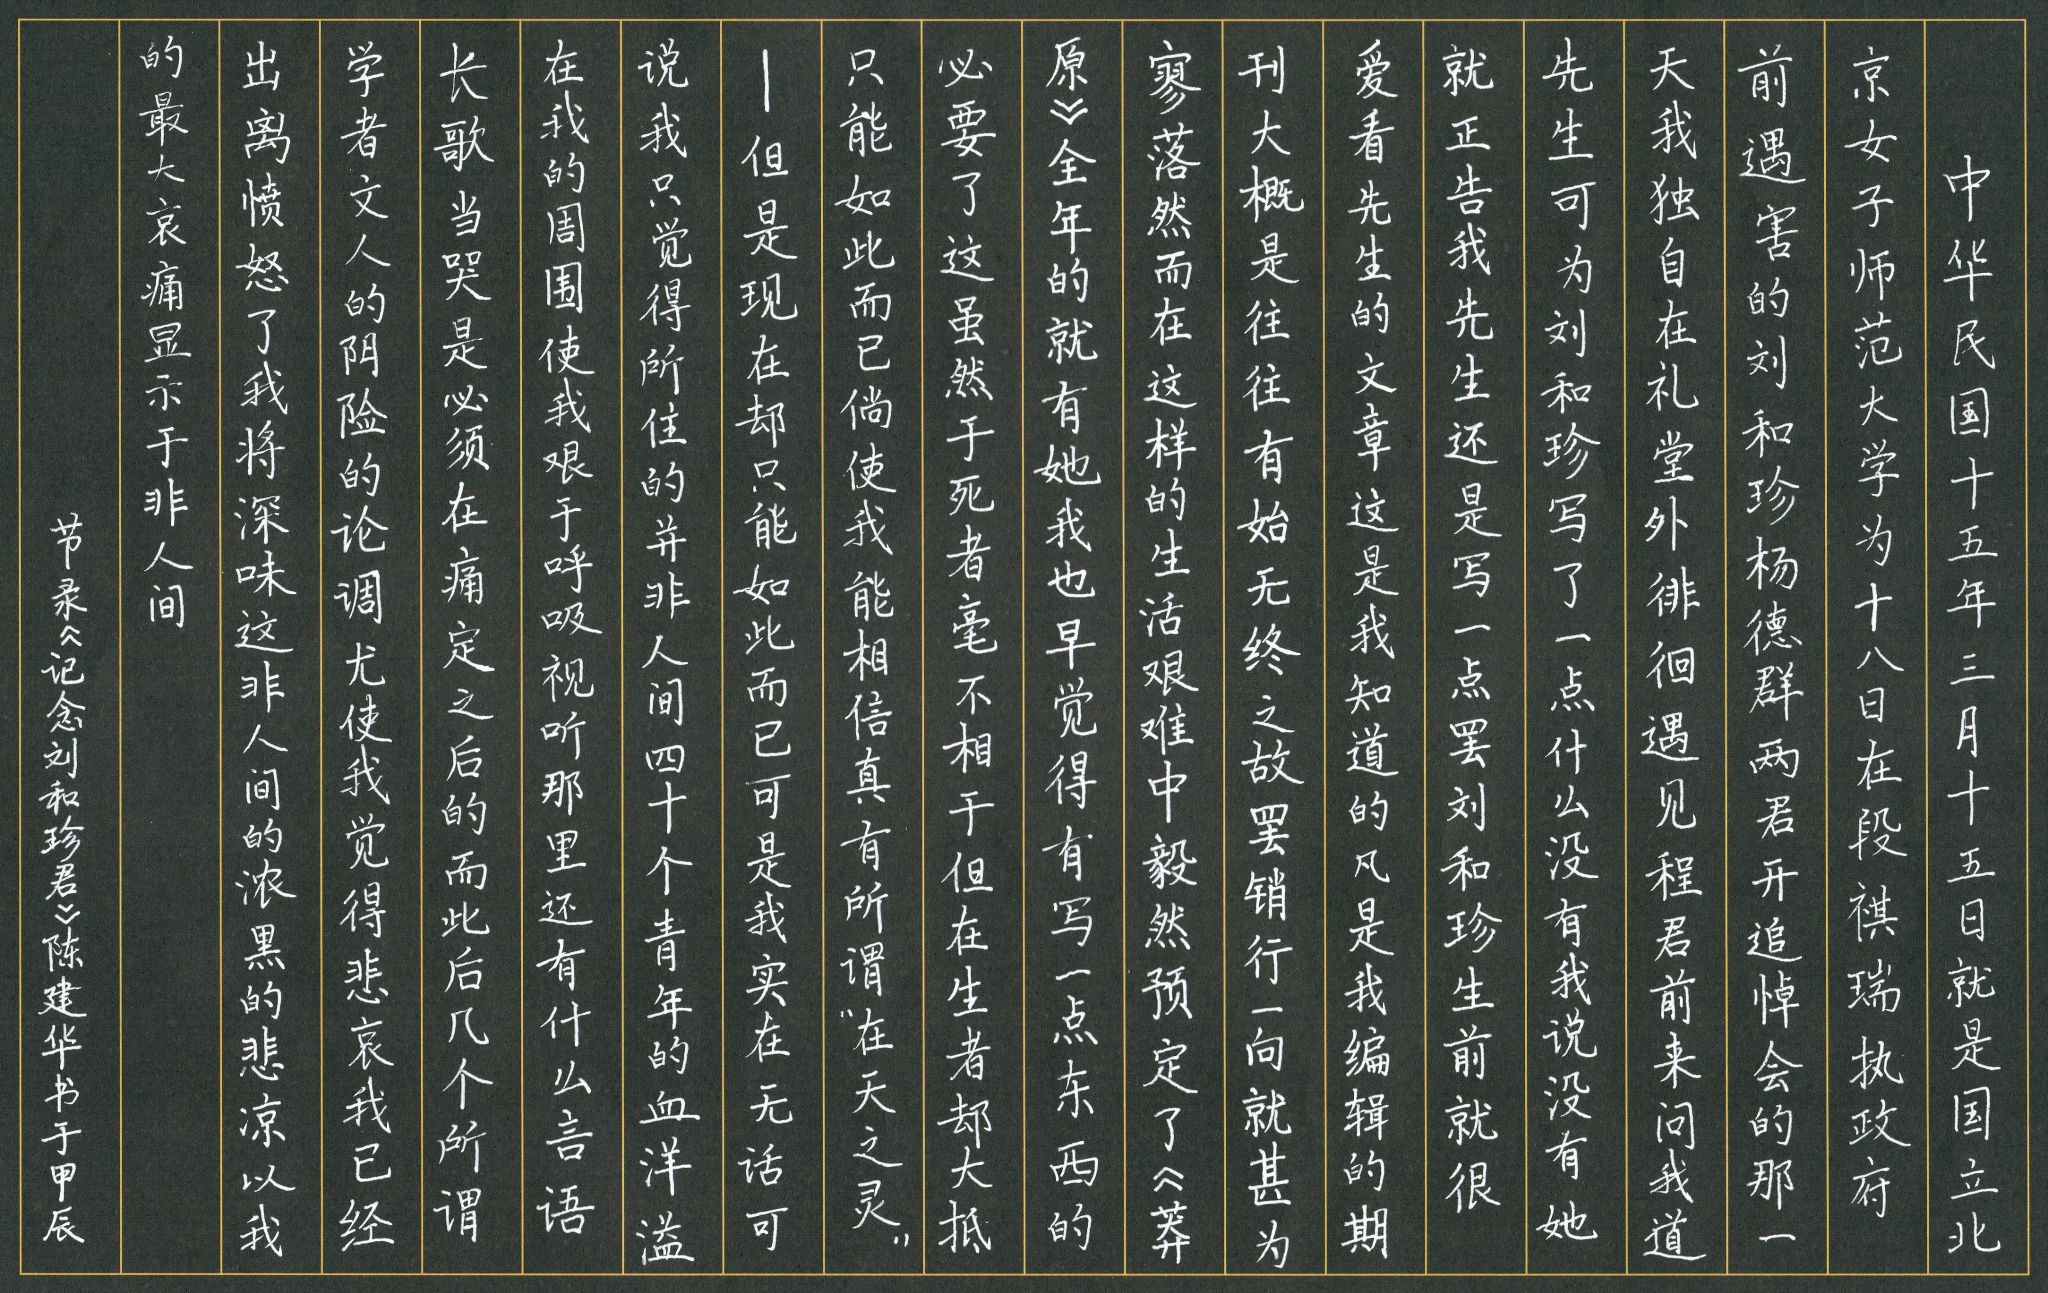 中华民国十五年三月十五日就是国立北
京女子师范大学为十八日在段祺瑞执政府
前遇害的刘和珍杨德群两君开追悼会的那一
天我独自在礼堂外徘徊遇见程君前来问我道
先生可为刘和珍写了一点什么没有我说没有她
就正告我先生还是写一点罢刘和珍生前就很
爱看先生的文章这是我知道的凡是我编辑的期
刊大概是往往有始无终之故罢销行一向就甚为
寥落然而在这样的生活艰难中毅然预定了《莽
原》全年的就有她我也早觉得有写一点东西的
必要了这虽然于死者毫不相干但在生者却大抵
只能如此而已倘使我能相信真有所谓“在天之灵”
—但是现在却只能如此而已可是我实在无话可
说我只觉得所住的并非人间四十个青年的血洋溢
在我的周围使我艰于呼吸视听那里还有什么言语
长歌当哭是必须在痛定之后的而此后几个所谓
学者文人的阴险的论调尤使我觉得悲哀我已经
出离愤怒了我将深味这非人间的浓黑的悲凉以我
的最大哀痛显示于非人间
节录《记念刘和珍君》陈建华书于甲辰